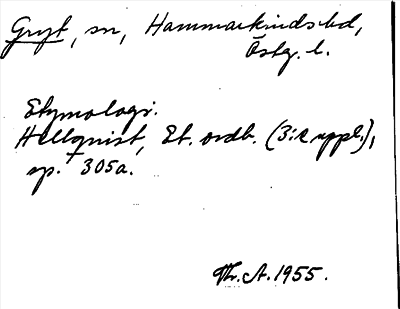 Gryt, sn, Hammarkinds hd,
Östg. l.
Etymologi.
Hellquist, Et. ordb. (3:e uppl.),
sp. 305a.
Th. A. 1955.